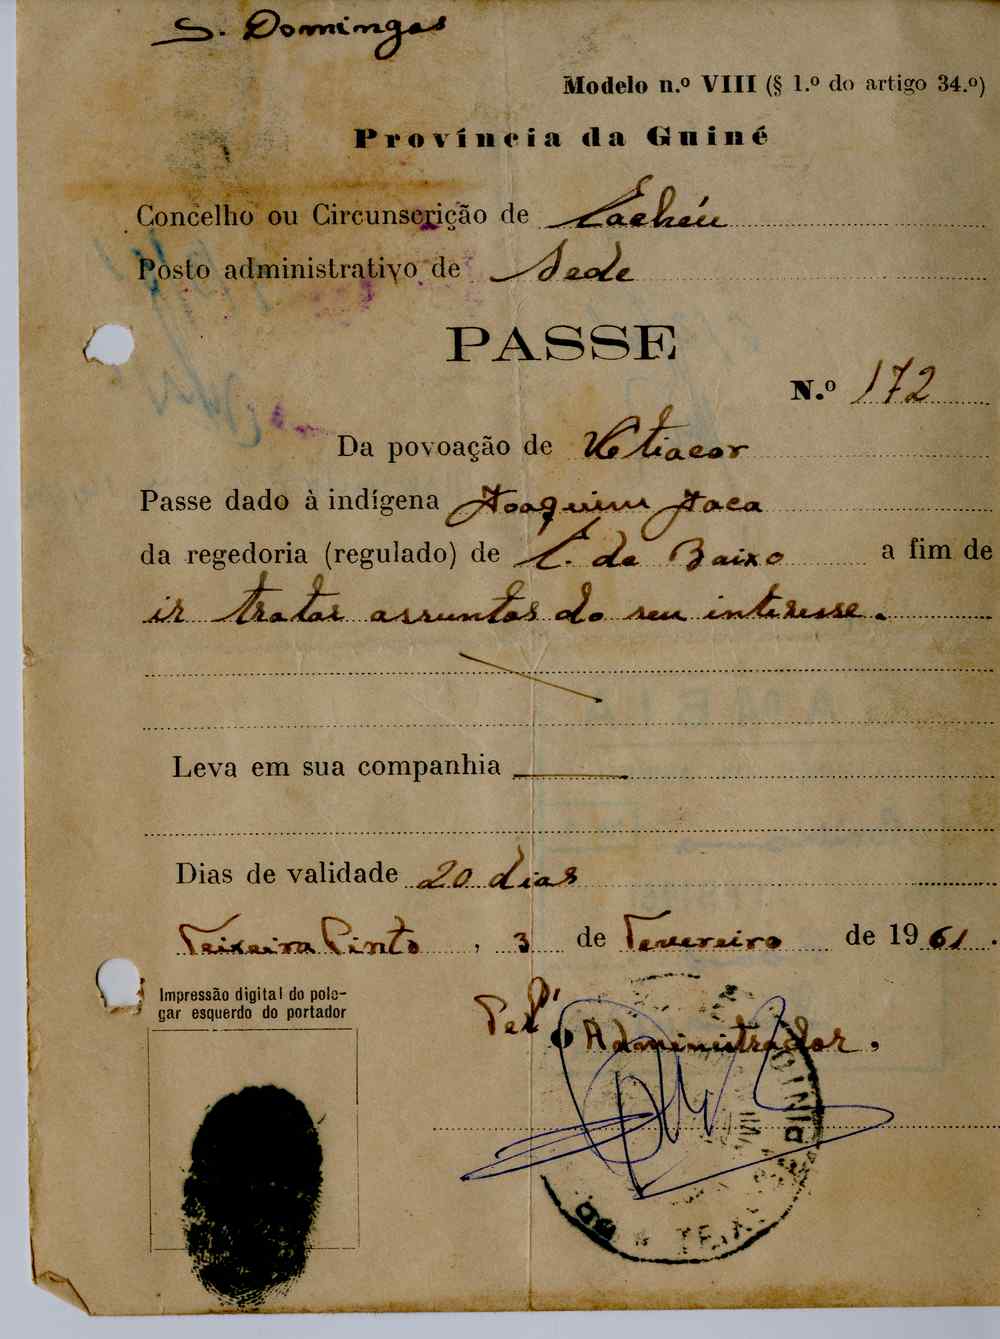 S. Domingos
Modelo n.º VIII (§ 1.º do artigo 34.º)
Província da Guiné
Concelho ou Circunscrição de Cachéu
Posto administrativo de Sede
PASSE
N.º 172
Da povoação de
Passe dado à indígena Joaquim Jaca
da regedoria (regulado) de C. de Baixo a fim de
ir tratar assuntos do seu interesse.
Leva em sua companhia
Dias de validade 20 dias
Teixeira Pinto, 3 de Fevereiro de 1961.
Impressão digital do pole-
gar esquerdo do portador
Pel'
o Administrador,